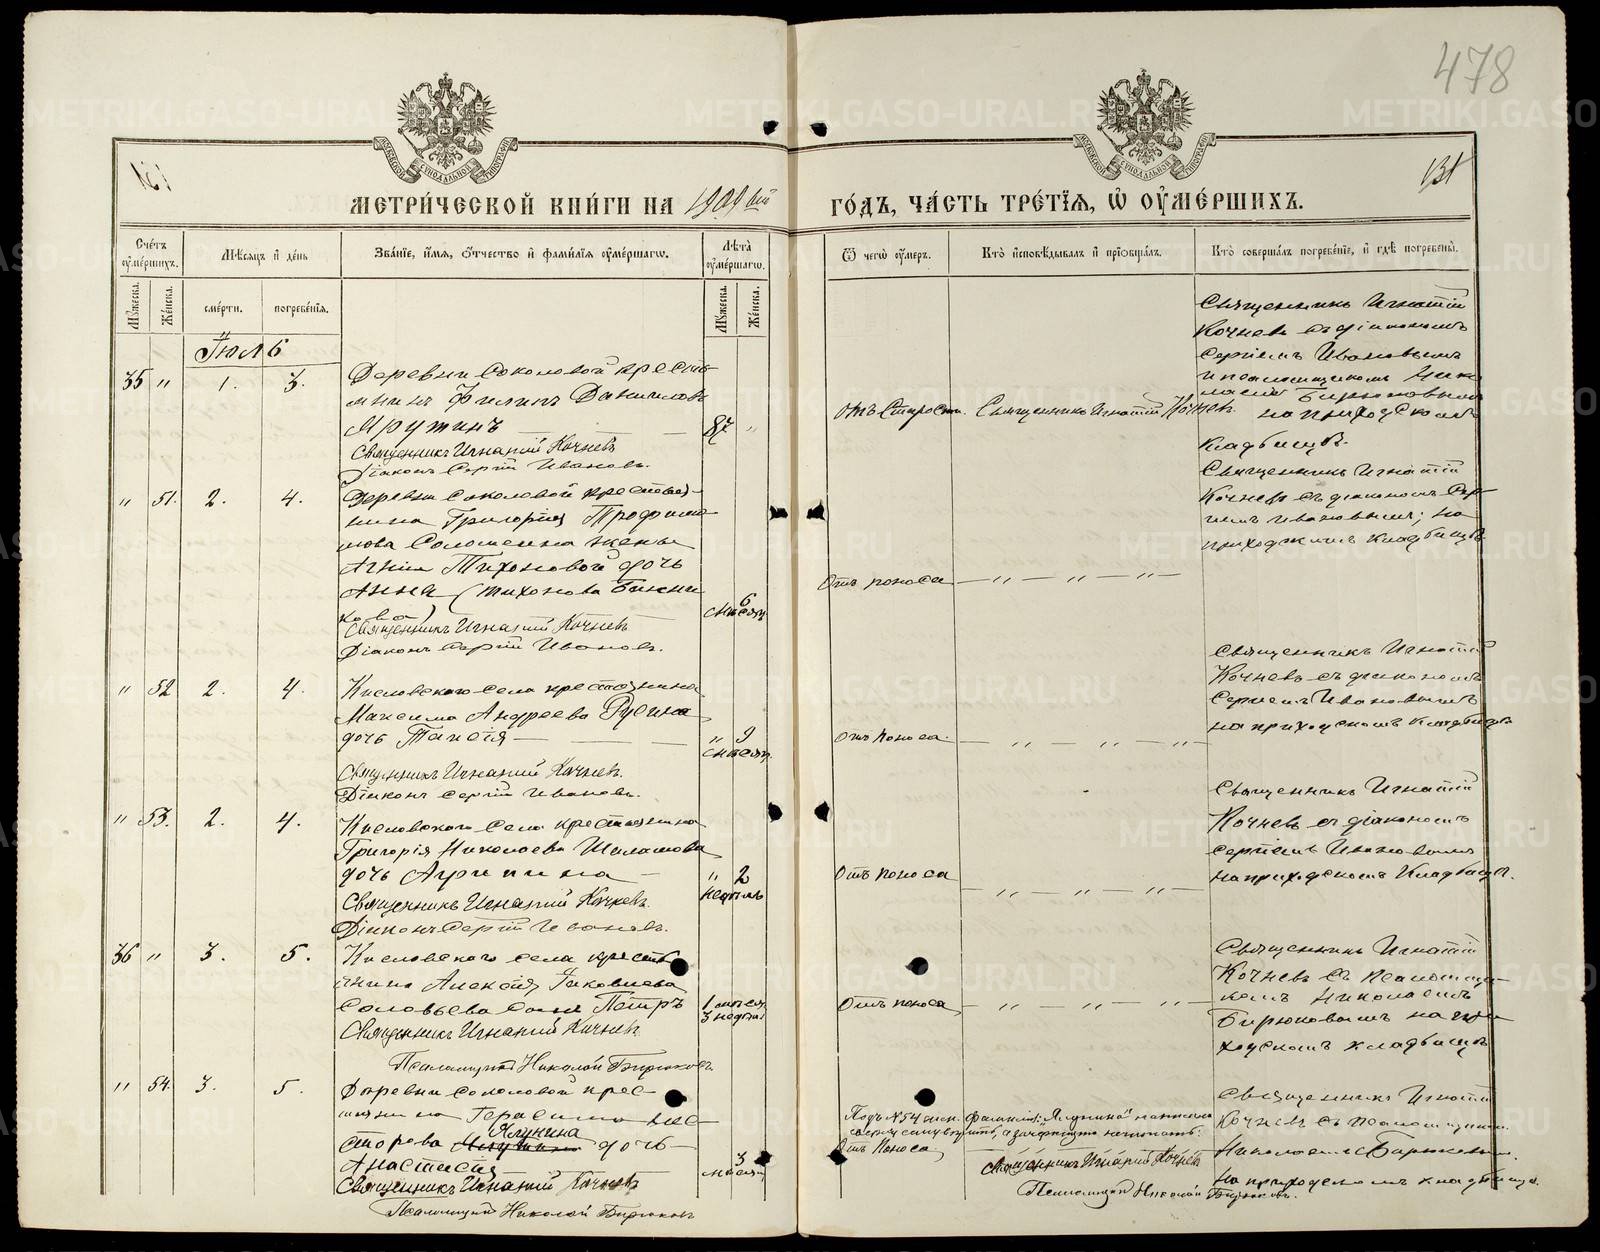 478
131
131
МЕТРИ́ЧЕСКОЙ КНИ́ГИ НА 1909 ый ГО́ДЪ, ЧА́СТЬ ТРЕ́ТІЯ, Ѡ ОУМЕ́РШИХЪ.
МОСКОВСКОЙ СѴНОДАЛЬНОЙ ТИПОГРАФІИ
МОСКОВСКОЙ СѴНОДАЛЬНОЙ ТИПОГРАФІИ
Сче́тъ оуме́ршихъ.
Мѣ́сяцъ и҆ де́нь
Зва́ніе, и҆́мя, ѻ҆́тчество и҆ фами́лія оуме́ршагѡ.
Лѣ́та оуме́ршагѡ.
Ѿ чегѡ̀ оу҆́меръ.
Кто̀ и҆сповѣ́дывалъ и҆ пріобща́лъ.
Кто̀ соверша́лъ погребе́ніе, и҆ гдѣ̀ погребены̀.
Мꙋ́жеска.
Же́нска.
сме́рти.
погребе́нія.
Мꙋ́жеска.
Же́нска.
Іюль
35 " 1. 3.
Деревни Соколовой кресть
янинъ Филипъ Даниловъ
87 "
Священникъ Игнатій Кочневъ
Діаконъ Сергій Ивановъ.
отъ старости.
Священникъ Игнатій Кочневъ.
Священникъ Игнатій
Кочневъ съ діакономъ
Сергіемъ Ивановымъ
и псаломщикомъ Нико
лаемъ Бирюковымъ
на приходскомъ
кладбищѣ.
" 51. 2. 4.
Деревни Соколовой крестья-
нина Григорія Трофи
мова Соломеина жены
Агніи Тихоновой дочь
Анна (Тихонова
Священникъ Игнатій Кочневъ
Діаконъ Сергій Ивановъ.
6
мѣсяц.
Отъ поноса — " — " — " —
Священникъ Игнатій
Кочневъ съ діакономъ Сер-
гіемъ Ивановымъ; на
приходскомъ кладбищѣ.
" 52 2. 4.
Кисловскаго села крестьянина
Максима Андреева Русина
дочь Таисія
Священникъ Игнатій Кочневъ.
Діаконъ Сергій Ивановъ.
" 9
мѣсяц.
Отъ поноса. — " — " — " —
Священникъ Игнатій
Кочневъ съ діакономъ
Сергіемъ Ивановымъ
на приходскомъ кладбищѣ
" 53. 2. 4.
Кисловскаго села крестьянина
Григорія Николаева Шалашова
дочь Агрипина
Священникъ Игнатій Кочневъ.
Діаконъ Сергій Ивановъ.
" 2
недѣль
Отъ поноса — " — " — " —
Священникъ Игнатій
Кочневъ съ діакономъ
Сергіемъ Ивановымъ
на приходскомъ кладбищѣ.
36 " 3. 5.
Кисловскаго села кресть
янина Алексія Іаковлева
Соловьева сынъ Петръ
Священникъ Игнатій Кочневъ.
Псаломщикъ Николай Бирюковъ.
1 мѣсяц
3 недѣли
Отъ поноса, — " — " — " —
Священникъ Игнатій
Кочневъ съ псаломщи-
комъ Николаемъ
Бирюковымъ на при
ходскомъ кладбищѣ
" 54. 3. 5.
Деревни Соколовой крес-
тьянина Герасима Нес-
торова Ялунина дочь
Анастасія
Священникъ Игнатій Кочневъ
Псаломщикъ Николай Бирюковъ
3
мѣсяц.
Подъ № 54 фамилія: "Ялунина" написана
сверху, а зачеркнуто
Отъ поноса,
Священникъ Игнатій Кочневъ
Псаломщикъ Николай Бирюковъ.
Священникъ Игнатій
Кочневъ съ псаломщикомъ
Николаемъ Бирюковымъ.
на приходскомъ кладбищѣ.
METRIKI.GASO-URAL.RU